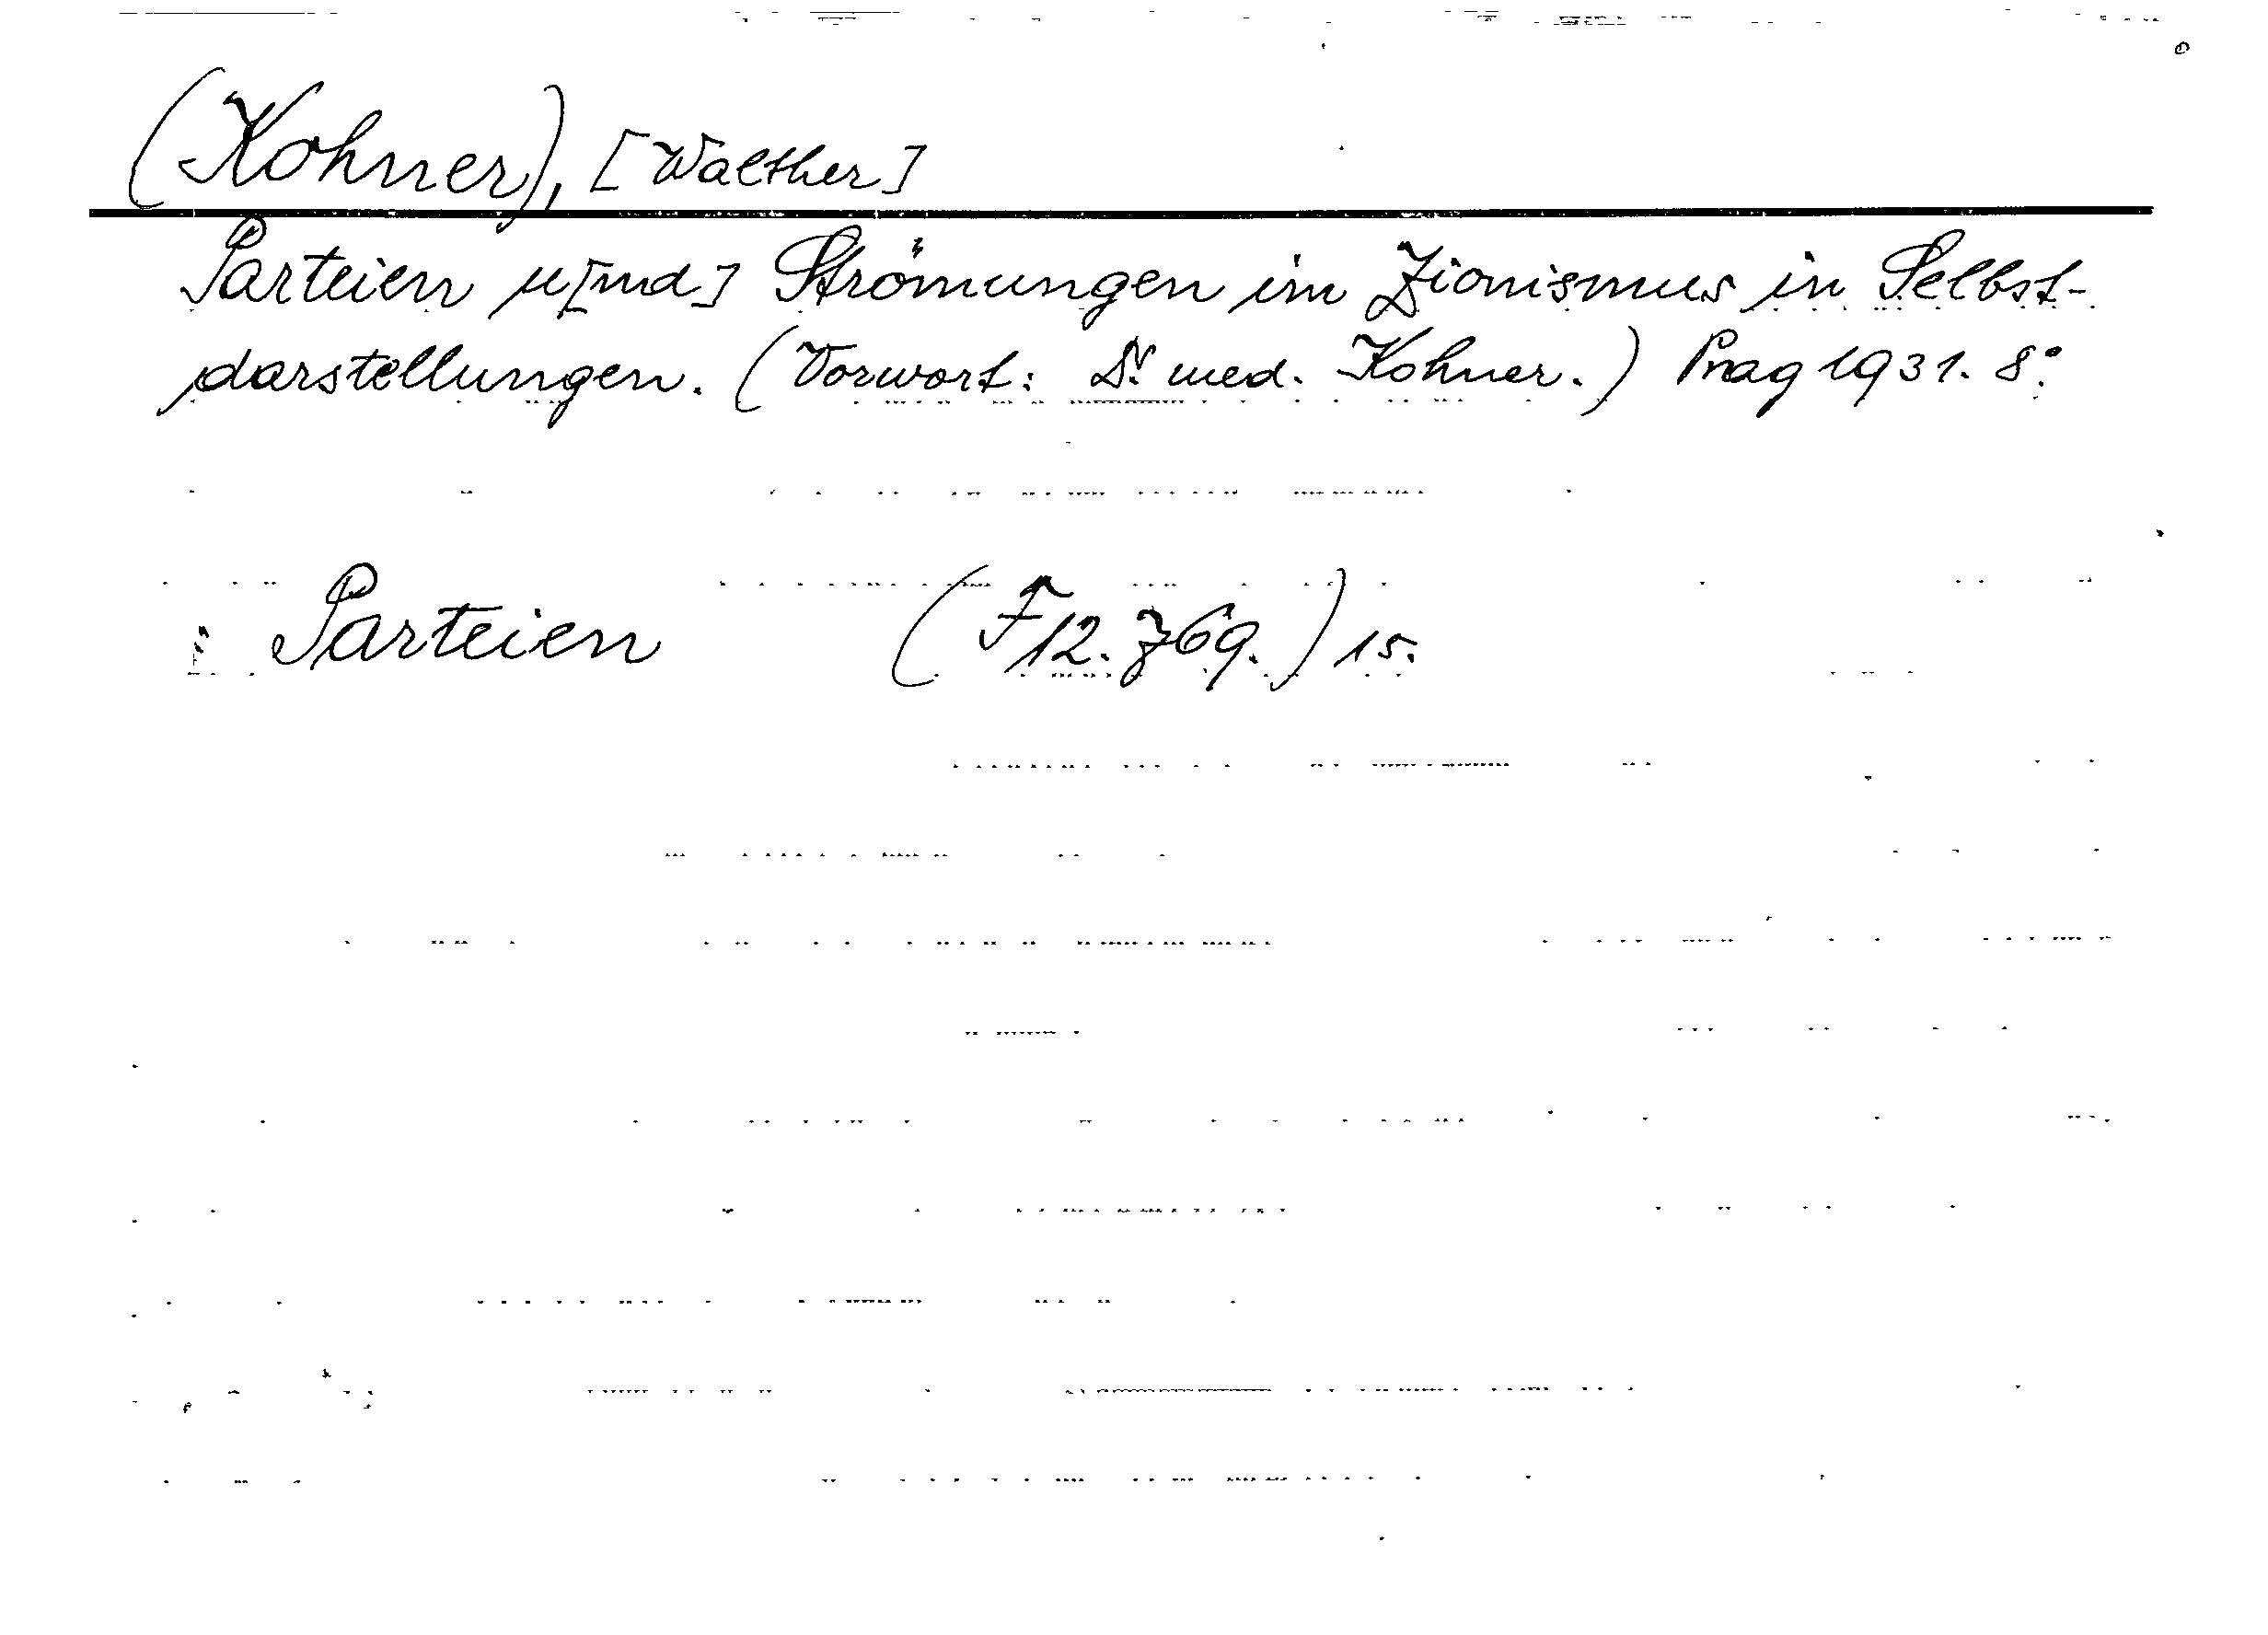 (Kohner), [Walther]
Parteien u[nd] Strömungen im Zionismus in Selbst-
darstellungen. (Vorwort: Dr. med. Kohner.) Prag 1931. 8°.
Parteien (F 12. 769.) 15.